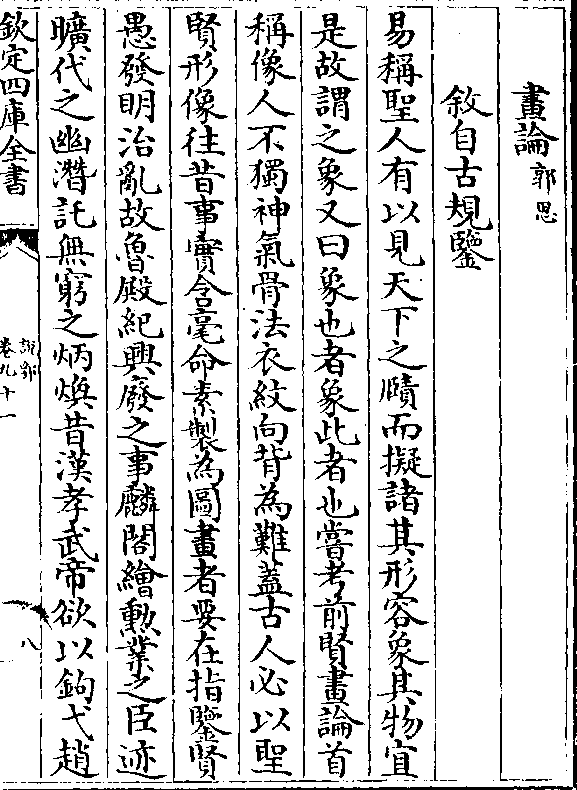 畫論郭思
敘自古規鑒
易稱聖人有以見天下之賾而擬諸其形容象其物宜
是故謂之象又曰象也者象此者也嘗考前賢畫論首
稱像人不獨神氣骨法衣紋向背為難蓋古人必以聖
賢形像往昔事實含毫命素製為圖畫者要在指鑒賢
愚發明治亂故魯殿紀興廢之事麟閣繪勲業之臣迹
曠代之幽潛託無窮之炳煥昔漢孝武帝欲以鉤弋趙
欽定四庫全書
說郛
卷九十一
八